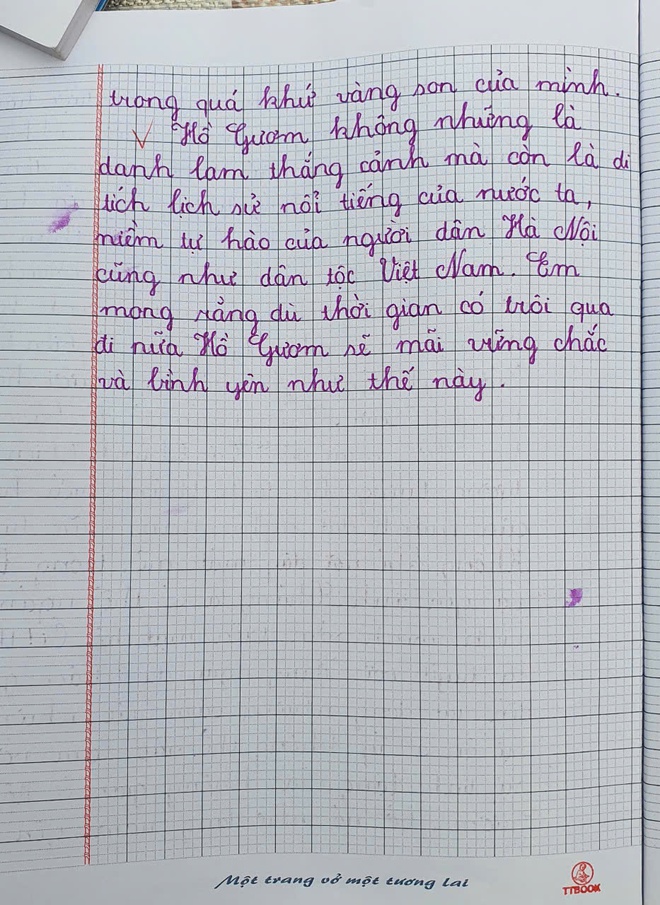 trong quá khứ vàng son của mình.
Hồ Gươm không những là
danh lam thắng cảnh mà còn là di
tích lịch sử nổi tiếng của nước ta,
niềm tự hào của người dân Hà Nội
cũng như dân tộc Việt Nam. Em
mong rằng dù thời gian có trôi qua
đi nữa Hồ Gươm sẽ mãi vững chắc
và bình yên như thế này.
Một trang vở một tương lai
TTBOOK